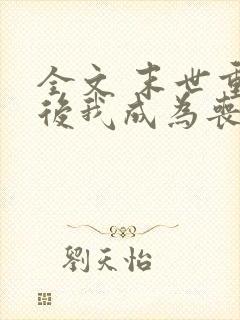 全文 末世重
後我成為喪
劉天怡